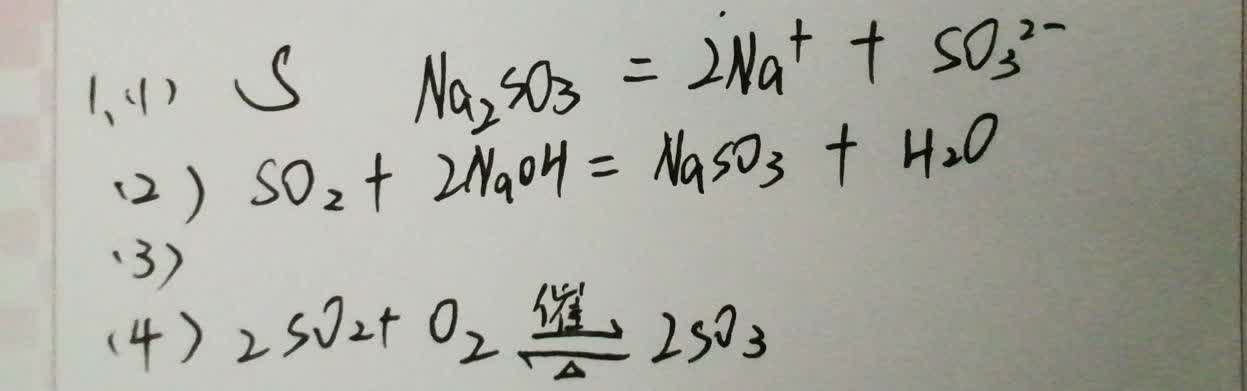 1、(1) S Na₂SO₃ = 2Na⁺ + SO₃²⁻
(2) SO₂ + 2NaOH = NaSO₃ + H₂O
(3)
(4) 2SO₂ + O₂ 催⇌△ 2SO₃